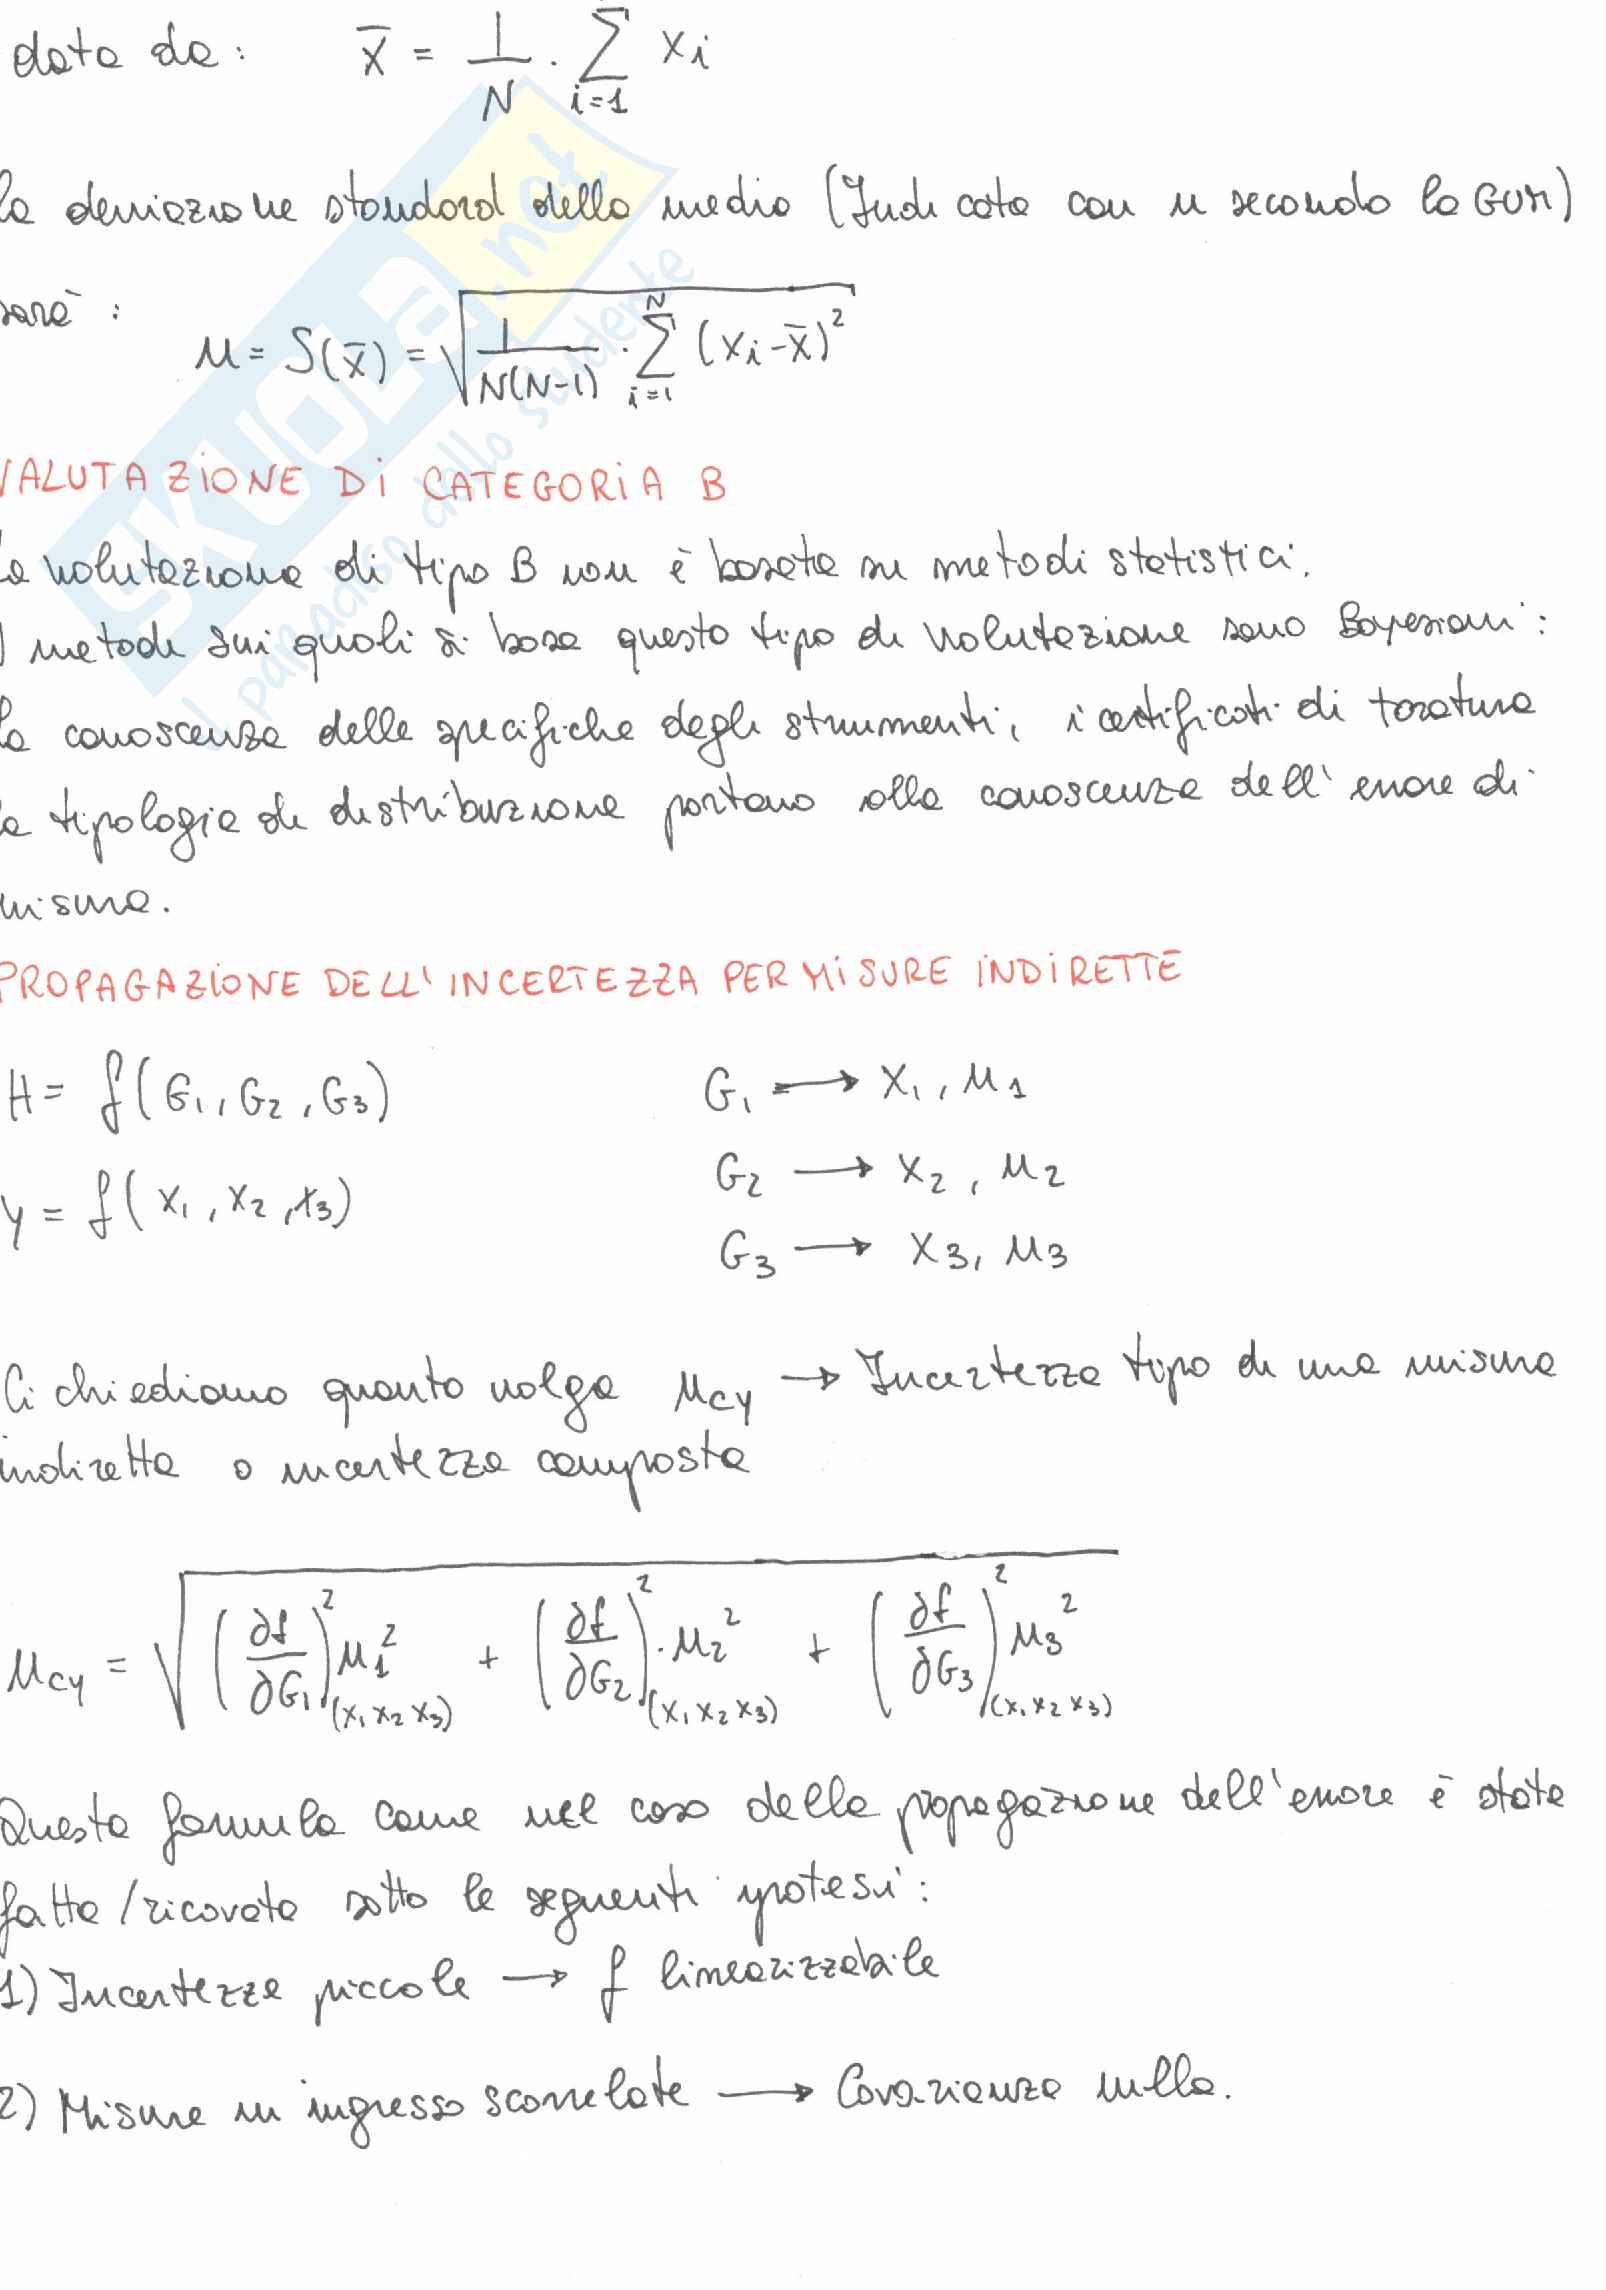 data da: x̄ = 1/N · Σ i=1 xi
la deviazione standard della media (Indicata con u secondo la GUM)
sarà:
u = S(x̄) = √( 1/N(N-1) · Σ i=1 N (xi - x̄)² )
VALUTAZIONE DI CATEGORIA B
La valutazione di tipo B non è basata su metodi statistici.
I metodi sui quali si basa questo tipo di valutazione sono Bayesiani:
la conoscenza delle specifiche degli strumenti, i certificati di taratura
e tipologie di distribuzione portano alla conoscenza dell'errore di
misura.
PROPAGAZIONE DELL'INCERTEZZA PER MISURE INDIRETTE
H = f(G1, G2, G3) G1 → x1, u1
G2 → x2, u2
y = f(x1, x2, x3)
G3 → x3, u3
Ci chiediamo quanto valga ucy → Incertezza tipo di una misura
indiretta o incertezza composta
ucy = √( (∂f/∂G1)² (x1 x2 x3) u1² + (∂f/∂G2)² (x1 x2 x3) · u2² + (∂f/∂G3)² (x1 x2 x3) u3² )
Questa formula come nel caso della propagazione dell'errore è stata
fatta/ricavata sotto le seguenti ipotesi:
1) Incertezze piccole → f linearizzabile
2) Misure in ingresso scorrelate → Covarianza nulla.
SKUOLA.net
il paradiso dello studente